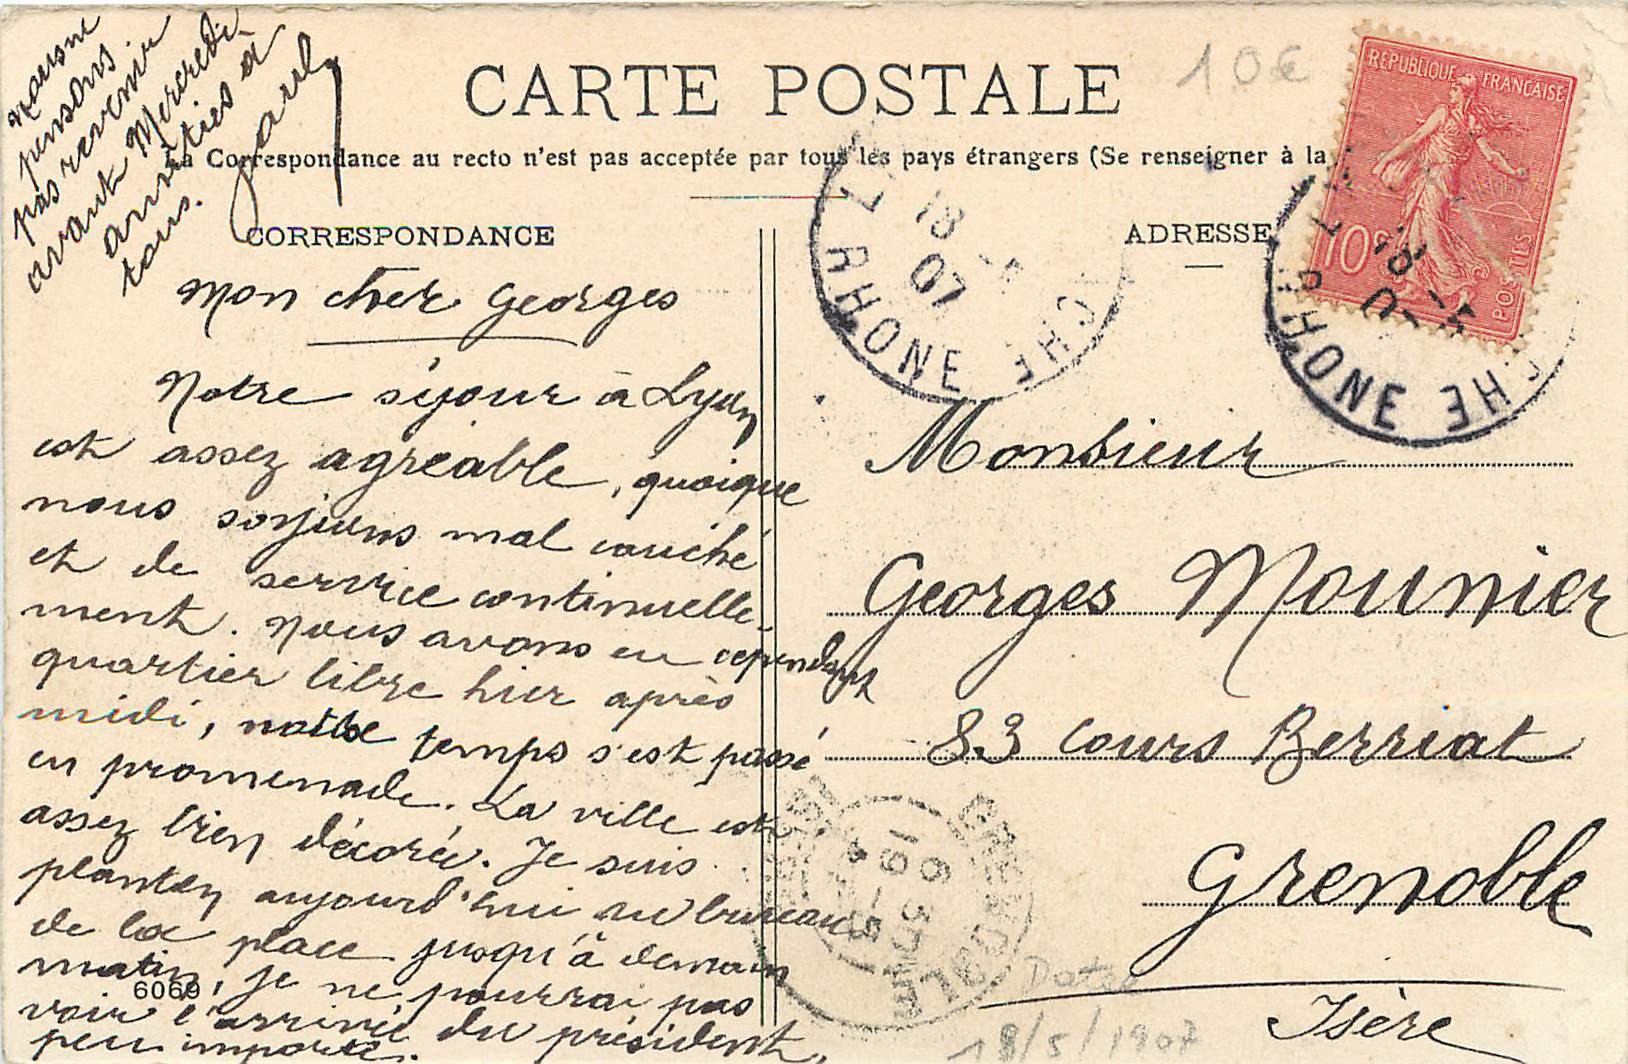 CARTE POSTALE
10€
La Correspondance au recto n'est pas acceptée par tous les pays étrangers (Se renseigner à la
CORRESPONDANCE
ADRESSE
RÉPUBLIQUE FRANÇAISE
10c
POSTES
18 -5
07
RHONE
18 -5
07
RHONE
Mon cher Georges
Notre séjour à Lyon
est assez agréable, quoique
nous soyions mal couché
et de service continuelle-
ment. Nous avons eu cependant
quartier libre hier après
midi, notre temps s'est passé
en promenade. La ville est
assez bien décorée. Je suis
planton aujourd'hui au bureau
de la place jusqu'à demain
matin, je ne pourrai pas
voir l'arrivée du président,
peu importe.
6069
pensons
pas revenir
avant Mercredi
amitiés à
tous.
Monsieur
Georges Mounier
83 Cours Berriat
Grenoble
Isère
GRENOBLE
ISERE
18/5/1907